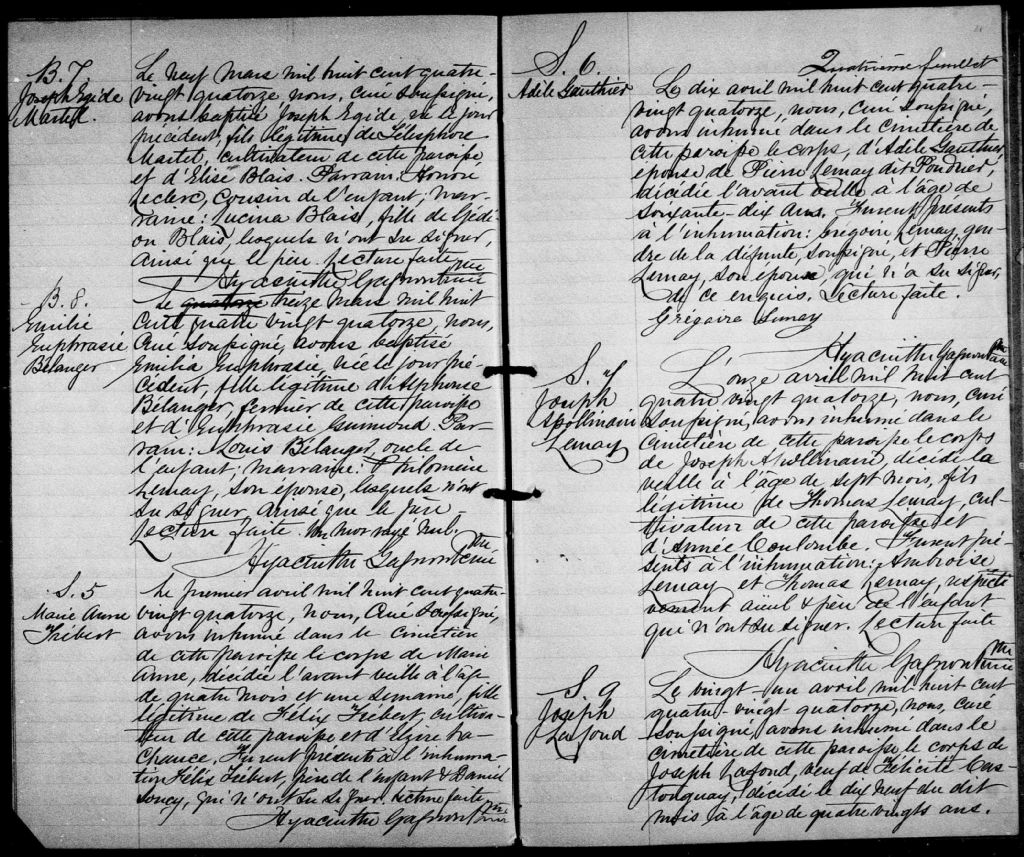 B. 7.
Joseph Egide
Martel.
Le neuf mars mil huit cent quatre-
vingt quatorze nous, curé soussigné,
avons baptisé Joseph Egide, né le jour
précédent, fils légitime de Télesphore
Martel, cultivateur de cette paroisse
et d'Elise Blais. Parrain: Honoré
Leclerc, cousin de l'enfant; mar-
raine: Lucina Blais, fille de Gédé-
on Blais, lesquels n'ont su signer,
ainsi que le père. Lecture faite
Hyacinthe Gagnon ptre curé
B. 8.
Emilie
Euphrasie
Bélanger
Le quatorze treize mars mil huit
cent quatre vingt quatorze, nous,
curé soussigné, avons baptisé
Emilia Euphrasie, née le jour pré-
cédent, fille légitime d'Alphonse
Bélanger, fermier de cette paroisse
et d'Euphrasie Guimond. Par-
rain: Louis Bélanger, oncle de
l'enfant; marraine: Philomène
Lemay, son épouse, lesquels n'ont
su signer, ainsi que le père.
Lecture faite. Un mot rayé nul.
Hyacinthe Gagnon ptre curé
S. 5
Marie Anne
Hébert
Le premier avril mil huit cent quatre
vingt quatorze, nous, curé soussigné,
avons inhumé dans le cimetière
de cette paroisse le corps de Marie
Anne, décédée l'avant veille à l'âge
de quatre mois et une semaine, fille
légitime de Félix Hébert, cultiva-
teur de cette paroisse et d'
Chance. Furent présents à l'inhuma-
tion Félix Hébert, père de l'enfant & Daniel
Soucy, qui n'ont su signer. Lecture faite
Hyacinthe Gagnon ptre curé
Quatrième feuillet
S. 6.
Adèle Gauthier
Le dix avril mil huit cent quatre-
vingt quatorze, nous, curé soussigné,
avons inhumé dans le cimetière de
cette paroisse le corps, d'Adèle Gauthier,
épouse de Pierre Lemay dit Poudrier,
décédée l'avant veille à l'âge de
soixante-dix ans. Furent présents
à l'inhumation: Grégoire Lemay, gen-
dre de la défunte, soussigné, et Pierre
Lemay, son époux, qui n'a su signer,
de ce enquis. Lecture faite.
Grégoire Lemay
Hyacinthe Gagnon ptre curé
S. 7
Joseph
Apollinaire
Lemay
L'onze avril mil huit cent
quatre vingt quatorze, nous, curé
soussigné, avons inhumé dans le
cimetière de cette paroisse le corps
de Joseph Apollinaire décédé la
veille à l'âge de sept mois, fils
légitime de Thomas Lemay, cul-
tivateur de cette paroisse et
d'Année Coulombe. Furent pré-
sents à l'inhumation: Ambroise
Lemay et Thomas Lemay, respecti-
vement aïeul & père de l'enfant
qui n'ont su signer. Lecture faite
Hyacinthe Gagnon ptre curé
S. 9
Joseph
Lafond
Le vingt-un avril mil huit cent
quatre-vingt-quatorze, nous, curé
soussigné, avons inhumé dans le
cimetière de cette paroisse le corps de
Joseph Lafond, veuf de Félicité Cas-
tonguay, décédé le dix neuf du dit
mois à l'âge de quatre vingts ans.